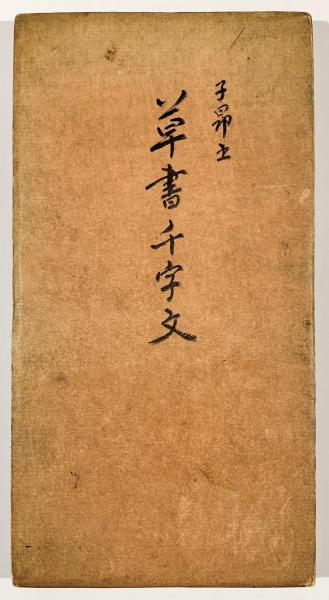 子昂書
草書千字文